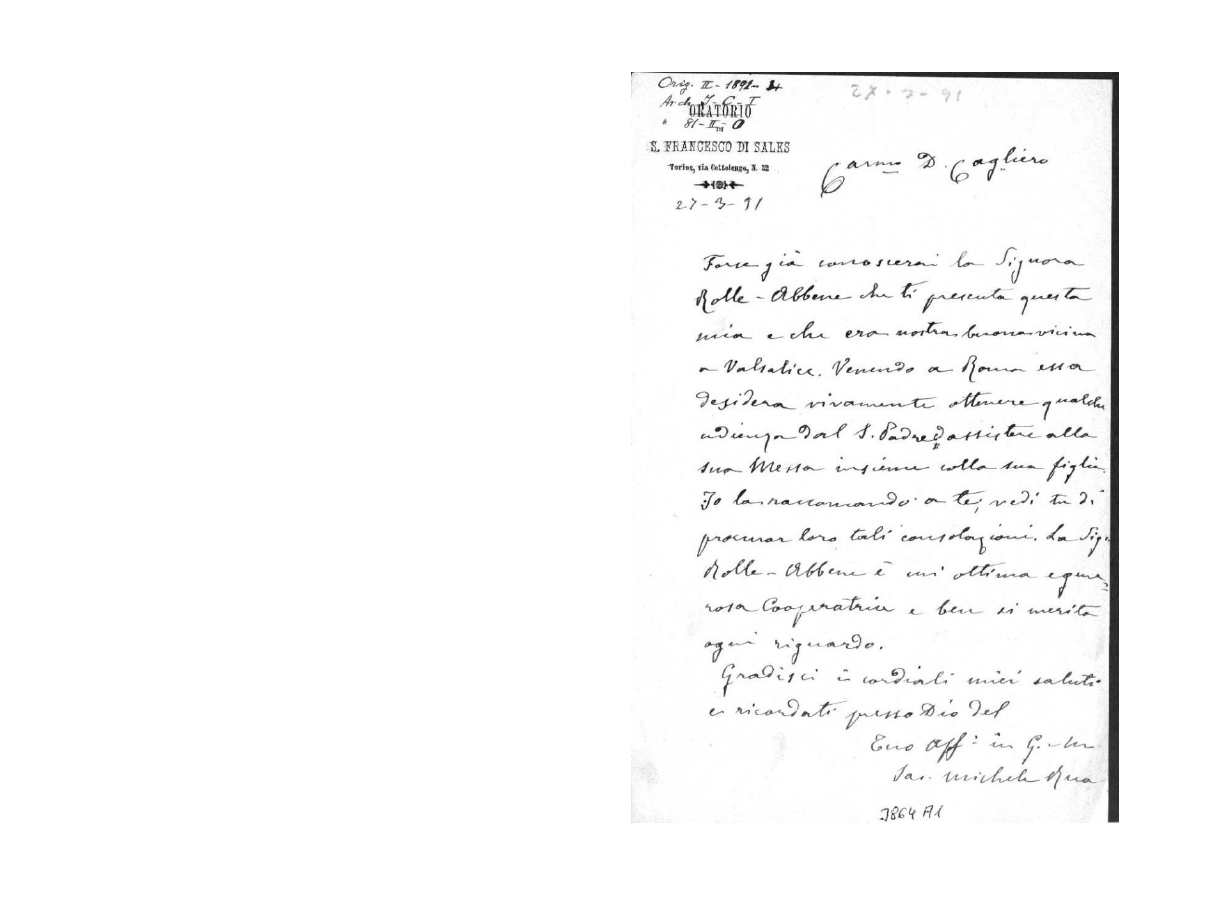 Orig. II - 1891 - 24
27-3-91
Arch. I - C - I
ORATORIO
" 81 - II - O
DI
S. FRANCESCO DI SALES
Torino, via Cottolengo, N. 32
27-3-91
Carmo D. Cagliero
Forse già conoscerai la Signora
Rolle-Abbene che ti presenta questa
mia e che era nostra buona vicina
a Valsalice. Venendo a Roma essa
desidera vivamente ottenere qualche
udienza dal S. Padre d'assistere alla
sua Messa insieme colla sua figlia.
Io la raccomando a te; vedi tu di
procurar loro tali consolazioni. La Sigra
Rolle-Abbene è un' ottima e gene=
rosa Cooperatrice e ben si merita
ogni riguardo.
Gradisci i cordiali miei saluti
e ricordati presso Dio del
Tuo Aff° in G. e M.
Sac. Michele Rua
3864 A1